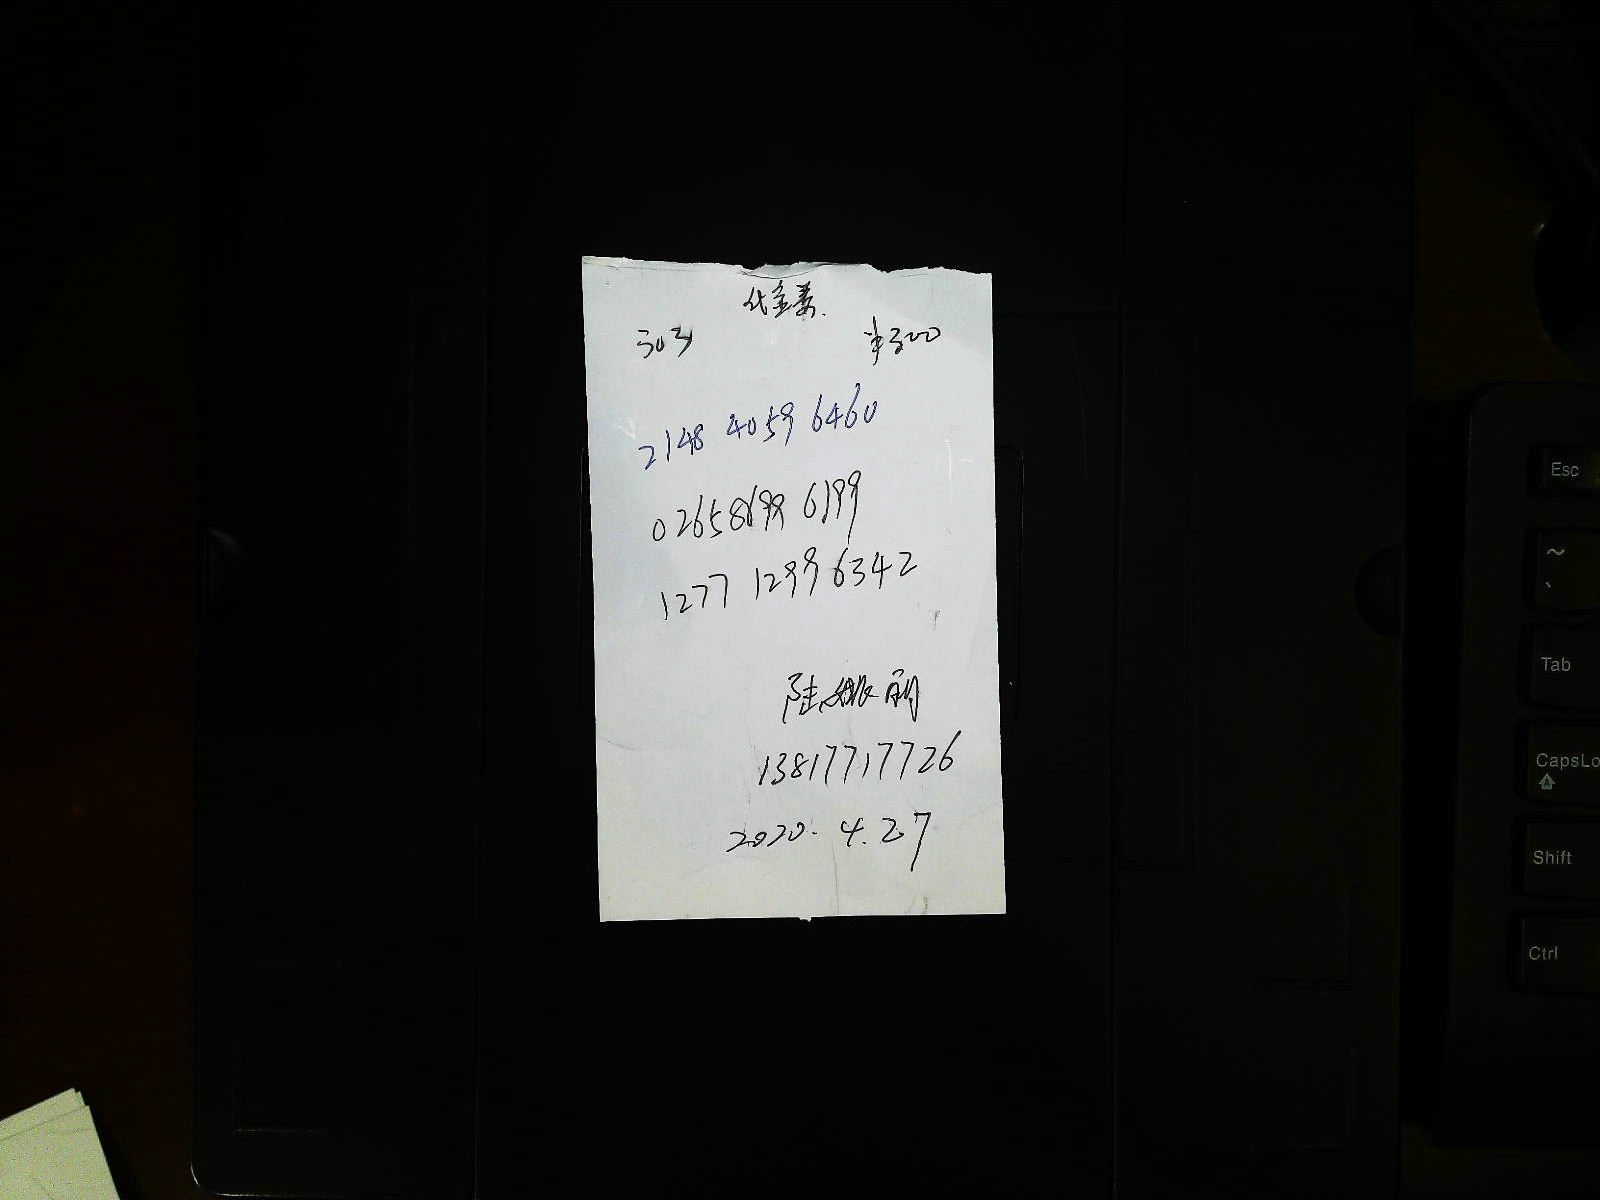 代金券
303 ¥300
2148 4059 6460
0265 8699 6199
1277 1299 6342
陆
13817717726
2020.4.27
Esc
~
`
Tab
CapsLo
Shift
Ctrl